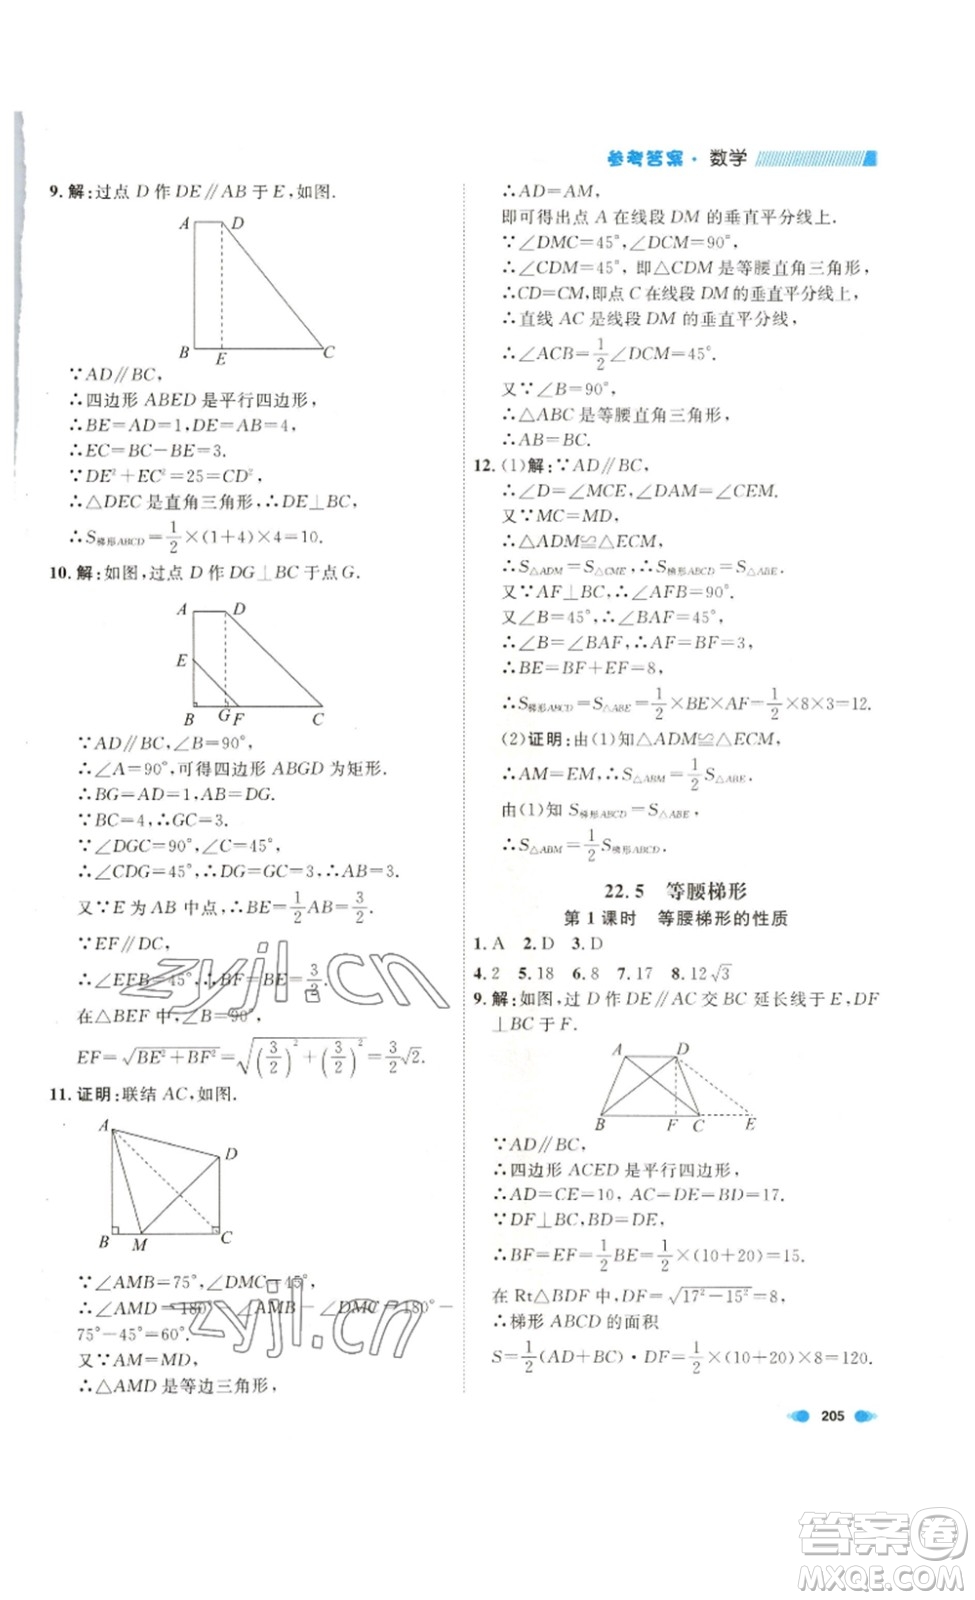 参考答案·数学
9.解:过点 D 作 DE∥AB 于 E,如图.
A D
B E C
∵AD∥BC,
∴四边形 ABED 是平行四边形,
∴BE=AD=1,DE=AB=4,
∴EC=BC-BE=3.
∵DE²+EC²=25=CD²,
∴△DEC 是直角三角形,DE⊥BC,
∴S梯形ABCD=1/2×(1+4)×4=10.
10.解:如图,过点 D 作 DG⊥BC 于点 G.
A D
E
B G F C
∵AD∥BC,∠B=90°,
∴∠A=90°,可得四边形 ABGD 为矩形.
∴BG=AD=1,AB=DG.
∵BC=4,∴GC=3.
∵∠DGC=90°,∠C=45°,
∴∠CDG=45°,∴DG=GC=3,∴AB=3.
又∵E 为 AB 中点,∴BE=1/2AB=3/2.
∵EF∥DC,
∴∠EFB=45°,∴BF=BE=3/2.
在△BEF 中,∠B=90°,
EF=√(BE²+BF²)=√((3/2)²+(3/2)²)=3/2√2.
11.证明:联结 AC,如图.
A
D
B M C
∵∠AMB=75°,∠DMC=45°,
∴∠AMD=180°-∠AMB-∠DMC=180°-
75°-45°=60°.
又∵AM=MD,
∴△AMD 是等边三角形,
∴AD=AM,
即可得出点 A 在线段 DM 的垂直平分线上.
∵∠DMC=45°,∠DCM=90°,
∴∠CDM=45°,即△CDM 是等腰直角三角形,
∴CD=CM,即点 C 在线段 DM 的垂直平分线上,
∴直线 AC 是线段 DM 的垂直平分线,
∴∠ACB=1/2∠DCM=45°.
又∵∠B=90°,
∴△ABC 是等腰直角三角形,
∴AB=BC.
12.(1)解:∵AD∥BC,
∴∠D=∠MCE,∠DAM=∠CEM.
又∵MC=MD,
∴△ADM≌△ECM,
∴S△ADM=S△CME,∴S梯形ABCD=S△ABE.
又∵AF⊥BC,∴∠AFB=90°.
又∠B=45°,∴∠BAF=45°,
∴∠B=∠BAF,∴AF=BF=3,
∴BE=BF+FE=8,
∴S梯形ABCD=S△ABE=1/2×BE×AF=1/2×8×3=12.
(2)证明:由(1)知△ADM≌△ECM,
∴AM=EM,∴S△ABM=1/2S△ABE.
由(1)知 S梯形ABCD=S△ABE,
∴S△ABM=1/2S梯形ABCD.
22.5 等腰梯形
第 1 课时 等腰梯形的性质
1.A 2.D 3.D
4.2 5.18 6.8 7.17 8.12√3
9.解:如图,过 D 作 DE∥AC 交 BC 延长线于 E,DF
⊥BC 于 F.
A D
B F C E
∵AD∥BC,
∴四边形 ACED 是平行四边形,
∴AD=CE=10,AC=DE=BD=17.
∵DF⊥BC,BD=DE,
∴BF=EF=1/2BE=1/2×(10+20)=15.
在 Rt△BDF 中,DF=√(17²-15²)=8,
∴梯形 ABCD 的面积
S=1/2(AD+BC)·DF=1/2×(10+20)×8=120.
205
zyjl.cn
zyjl.cn
答案圈
MXQE.COM